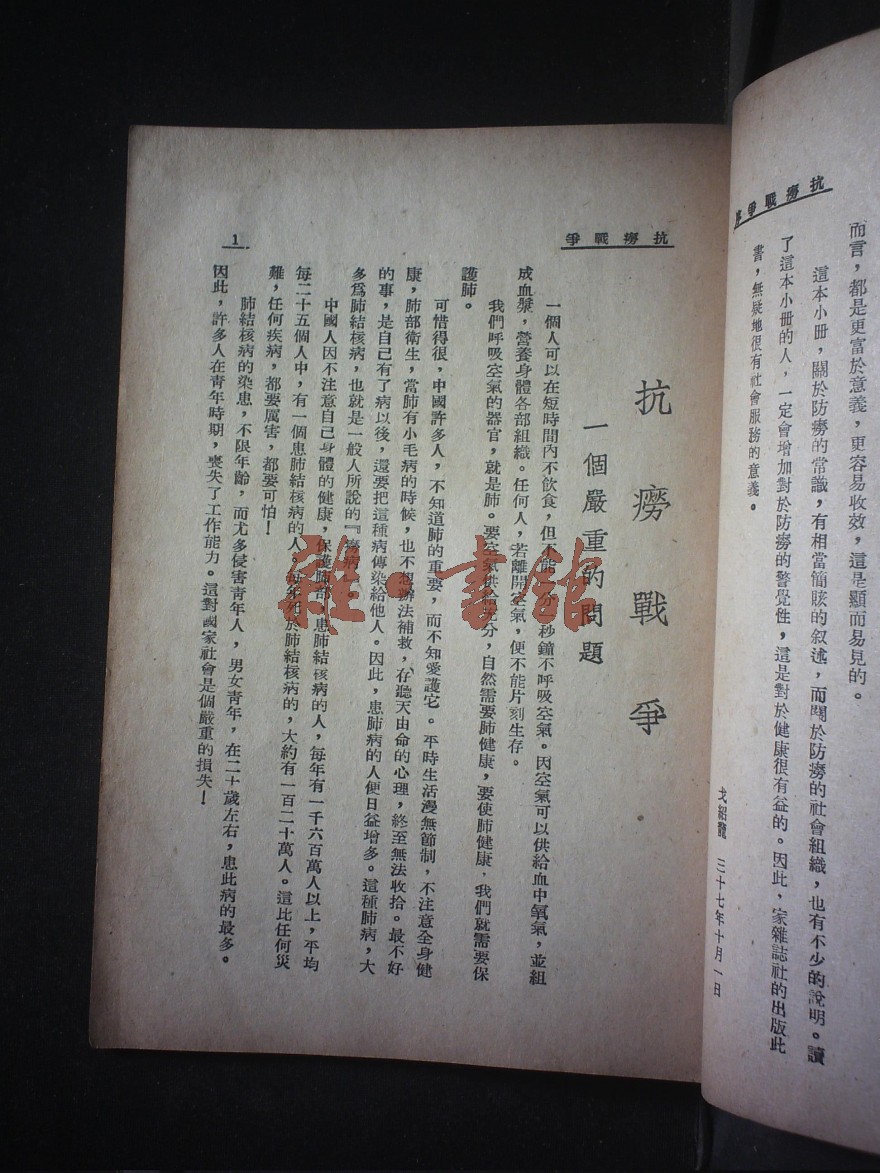 抗癆戰爭序
而言，都是更富於意義，更容易收效，這是顯而易見的。
這本小冊，關於防癆的常識，有相當簡賅的叙述，而關於防癆的社會組織，也有不少的說明。讀
了這本小冊的人，一定會增加對於防癆的警覺性，這是對於健康很有益的。因此，家雜誌社的出版此
書，無疑地很有社會服務的意義。
戈紹龍　三十七年十月一日
抗癆戰爭
1
抗癆戰爭
一個嚴重的問題
一個人可以在短時間內不飲食，但不能一分一秒鐘不呼吸空氣。因空氣可以供給血中氧氣，並組
成血漿，營養身體各部組織。任何人，若離開空氣，便不能片刻生存。
我們呼吸空氣的器官，就是肺。要空氣供給充分，自然需要肺健康，要使肺健康，我們就需要保
護肺。
可惜得很，中國許多人，不知道肺的重要，而不知愛護它。平時生活漫無節制，不注意全身健
康，肺部衛生，當肺有小毛病的時候，也不想辦法補救，存聽天由命的心理，終至無法收拾。最不好
的事，是自己有了病以後，還要把這種病傳染給他人。因此，患肺病的人便日益增多。這種肺病，大
多爲肺結核病，也就是一般人所說的『癆病』。
中國人因不注意自己身體的健康，保護肺部，患肺結核病的人，每年有一千六百萬人以上，平均
每二十五個人中，有一個患肺結核病的人。每年死於肺結核病的，大約有一百二十萬人。這比任何災
難，任何疾病，都要厲害，都要可怕！
肺結核病的染患，不限年齡，而尤多侵害青年人，男女青年，在二十歲左右，患此病的最多。
因此，許多人在青年時期，喪失了工作能力。這對國家社會是個嚴重的損失！
雜·書館